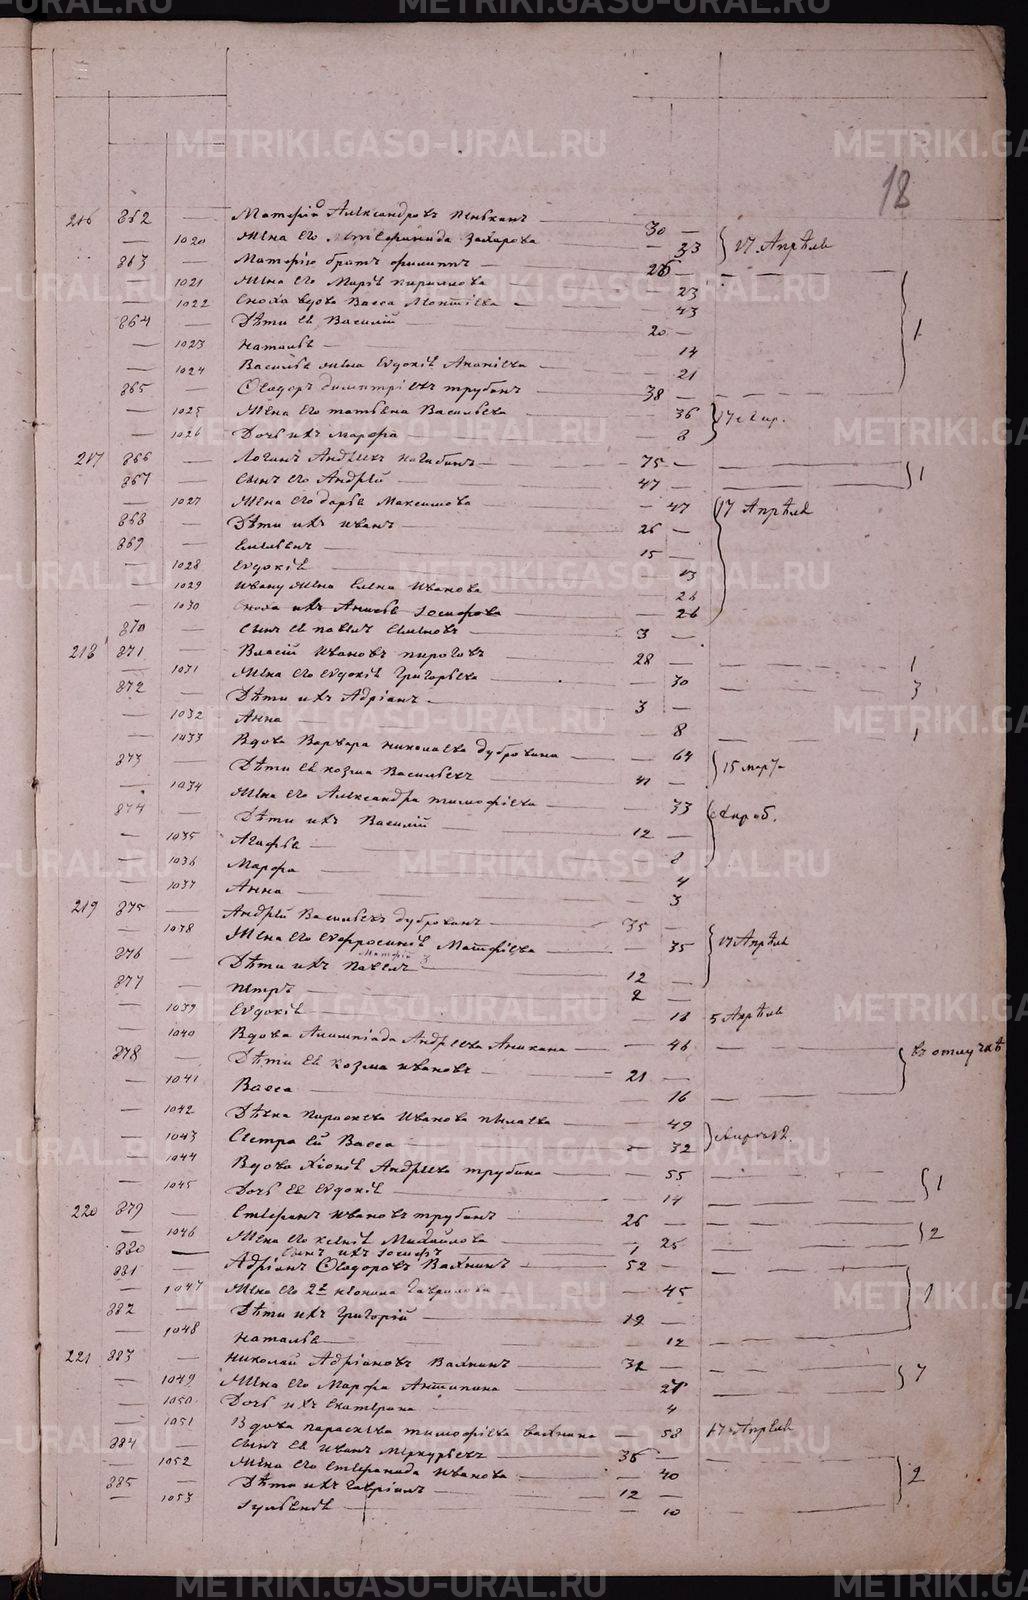 18
216 862 — Матфій Александровъ Пеньканъ — 30 —
— 1020 Жена его Стефанида Захарова — 33 } 17 Апрѣля
863 — Матфію братъ Филиппъ — 26 —
— 1021 Жена его Марія Кирилова — 23
— 1022 Сноха вдова Васса Мокѣева — 43
864 — Дѣти ея Василій — 20 —
— 1023 Наталья — 14 } 1
— 1024 Василья жена Евдокія Ананіева — 21
865 — Ѳеодоръ Димитріевъ Трубинъ — 38 —
— 1025 Жена его Татьяна Васильева — 36 } 17 Апр.
— 1026 Дочь ихъ Марфа — 8
217 866 — Логинъ Андреевъ — 75 — } 1
867 — Сынъ его Андрей — 47 —
— 1027 Жена его Дарья Максимова — 47 17 Апрѣля
868 — Дѣти ихъ Иванъ — 26 —
869 — — 15 —
— 1028 Евдокія — 13
— 1029 Ивану жена Елена Иванова — 26
— 1030 Сноха ихъ Анисья Іосифова — 26
870 — Сынъ ея Павелъ Семеновъ — 3 —
218 871 — Власій Ивановъ Пироговъ — 28 — 1
— 1031 Жена его Евдокія Григорьева — 30 3
872 — Дѣти ихъ Адріанъ — 3 —
— 1032 Анна — 8 1
— 1033 Вдова Варвара Николаева Дубровина — 64 } 15 Марта
873 — Дѣти ея Козма Васильевъ — 41 —
— 1034 Жена его Александра Тимофіева — 33
874 — Дѣти ихъ Василій — 12 —
— 1035 Агафья — 8
— 1036 Марфа — 4
— 1037 Анна — 3
219 875 — Андрей Васильевъ Дубровинъ — 35 —
— 1038 Жена его Евфросинія Матфіева — 35 } 17 Апрѣля
Матфій 3
876 — Дѣти ихъ Павелъ — 12 —
877 — Петръ — 2 —
— 1039 Евдокія — 18 5 Апрѣля
— 1040 Вдова Алимпіада Андреева Аникина — 46
878 — Дѣти ея Козма Ивановъ — 21 — } въ отлучкѣ
— 1041 Васса — 16
— 1042 Дѣвка Параскева Иванова — 49
— 1043 Сестра ей Васса — 32
— 1044 Вдова Хіонія Андреева Трубина — 55 } 1
— 1045 Дочь ея Евдокія — 14
220 879 — Стефанъ Ивановъ Трубинъ — 26 — } 2
— 1046 Жена его Ксенія Михайлова — 25
880 — Сынъ ихъ Іосифъ — 1 —
881 — Адріанъ Ѳеодоровъ Вахнинъ — 52 —
— 1047 Жена его 2я Неонила Гаврилова — 45 } 1
882 — Дѣти ихъ Григорій — 19 —
— 1048 Наталья — 12
221 883 — Николай Адріановъ Вахнинъ — 32 — } 7
— 1049 Жена его Марфа Антипина — 28
— 1050 Дочь ихъ Екатерина — 4
— 1051 Вдова Параскева Тимофіева Вахнина — 58 17 Апрѣля
884 — Сынъ ея Иванъ Меркурьевъ — 36 —
— 1052 Жена его Стефанида Иванова — 40 } 2
885 — Дѣти ихъ Гавріилъ — 12 —
— 1053 Гульбенія — 10
METRIKI.GASO-URAL.RU